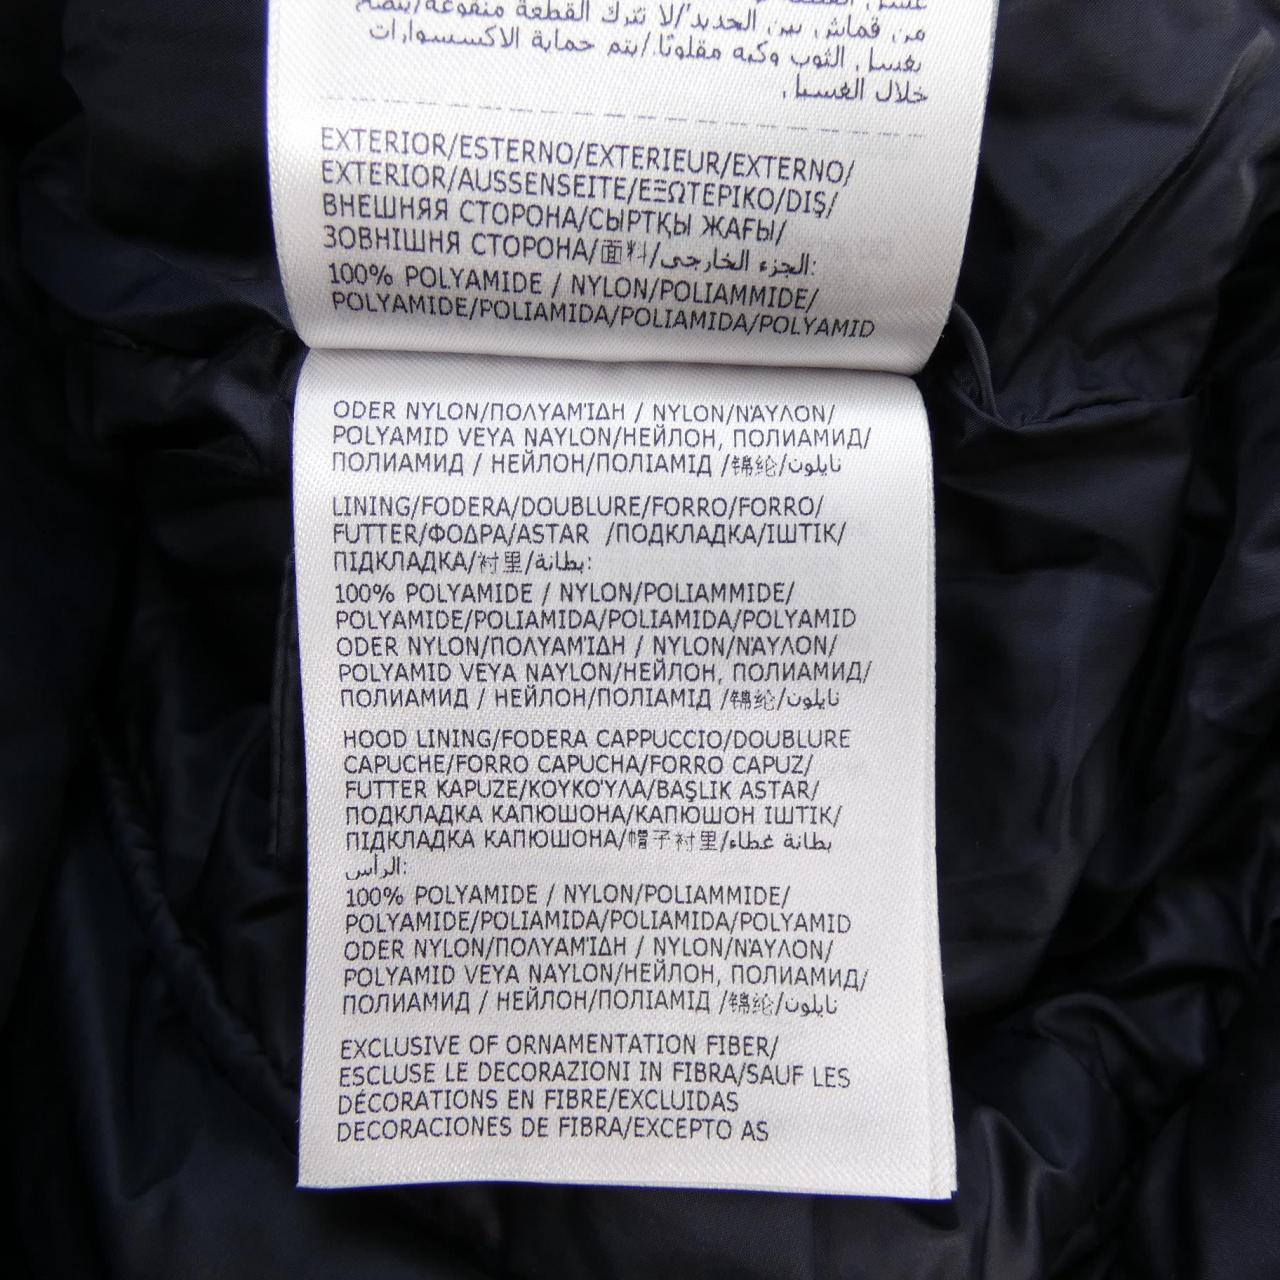 من قماش بين الحديد/لا تترك القطعة منقوعة/ينصح
بغسل الثوب وكيه مقلوبًا/يتم حماية الاكسسوارات
خلال الغسيل.
EXTERIOR/ESTERNO/EXTERIEUR/EXTERNO/
EXTERIOR/AUSSENSEITE/ΕΞΩΤΕΡΙΚΟ/DIŞ/
ВНЕШНЯЯ СТОРОНА/СЫРТҚЫ ЖАҒЫ/
ЗОВНІШНЯ СТОРОНА/面料/الجزء الخارجي:
100% POLYAMIDE / NYLON/POLIAMMIDE/
POLYAMIDE/POLIAMIDA/POLIAMIDA/POLYAMID
ODER NYLON/ΠΟΛΥΑΜΊΔΗ / NYLON/ΝΆΥΛΟΝ/
POLYAMID VEYA NAYLON/НЕЙЛОН, ПОЛИАМИД/
ПОЛИАМИД / НЕЙЛОН/ПОЛІАМІД /锦纶/نايلون
LINING/FODERA/DOUBLURE/FORRO/FORRO/
FUTTER/ΦΟΔΡΑ/ASTAR /ПОДКЛАДКА/ІШТІК/
ПІДКЛАДКА/衬里/بطانة:
100% POLYAMIDE / NYLON/POLIAMMIDE/
POLYAMIDE/POLIAMIDA/POLIAMIDA/POLYAMID
ODER NYLON/ΠΟΛΥΑΜΊΔΗ / NYLON/ΝΆΥΛΟΝ/
POLYAMID VEYA NAYLON/НЕЙЛОН, ПОЛИАМИД/
ПОЛИАМИД / НЕЙЛОН/ПОЛІАМІД /锦纶/نايلون
HOOD LINING/FODERA CAPPUCCIO/DOUBLURE
CAPUCHE/FORRO CAPUCHA/FORRO CAPUZ/
FUTTER KAPUZE/ΚΟΥΚΟΎΛΑ/BAŞLIK ASTAR/
ПОДКЛАДКА КАПЮШОНА/КАПЮШОН ІШТІК/
ПІДКЛАДКА КАПЮШОНА/帽子衬里/بطانة غطاء
الرأس:
100% POLYAMIDE / NYLON/POLIAMMIDE/
POLYAMIDE/POLIAMIDA/POLIAMIDA/POLYAMID
ODER NYLON/ΠΟΛΥΑΜΊΔΗ / NYLON/ΝΆΥΛΟΝ/
POLYAMID VEYA NAYLON/НЕЙЛОН, ПОЛИАМИД/
ПОЛИАМИД / НЕЙЛОН/ПОЛІАМІД /锦纶/نايلون
EXCLUSIVE OF ORNAMENTATION FIBER/
ESCLUSE LE DECORAZIONI IN FIBRA/SAUF LES
DÉCORATIONS EN FIBRE/EXCLUIDAS
DECORACIONES DE FIBRA/EXCEPTO AS